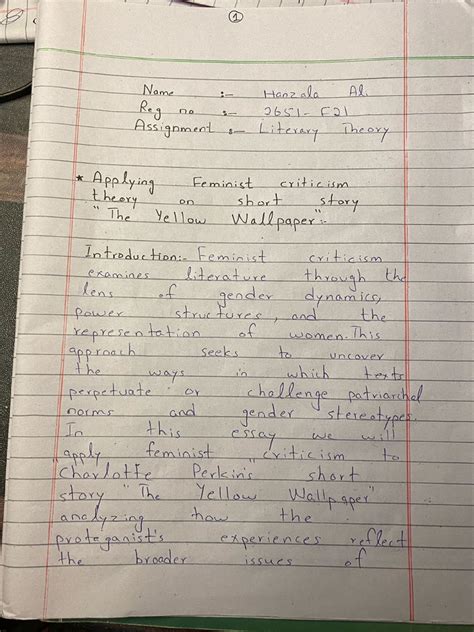 1
Name :- Hanzala Ali
Reg no :- 2651-F21
Assignment :- Literary Theory
* Applying Feminist criticism
theory on short story
"The Yellow Wallpaper":-
Introduction:- Feminist criticism
examines literature through the
lens of gender dynamics,
power structures, and the
representation of women. This
approach seeks to uncover
the ways in which texts
perpetuate or challenge patriarchal
norms and gender stereotypes.
In this essay we will
apply feminist criticism to
Charlotte Perkin's short
story "The Yellow Wallpaper"
analyzing how the
proteganist's experiences reflect
the broader issues of